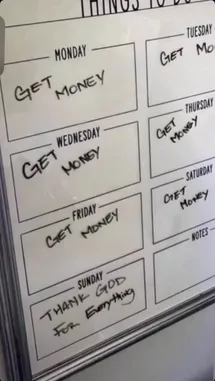 THINGS TO DO
MONDAY
GET MONEY
TUESDAY
GET MO
WEDNESDAY
GET MONEY
THURSDAY
GET
MONEY
FRIDAY
GET MONEY
SATURDAY
GET
MONEY
SUNDAY
THANK GOD
FOR Everything
NOTES